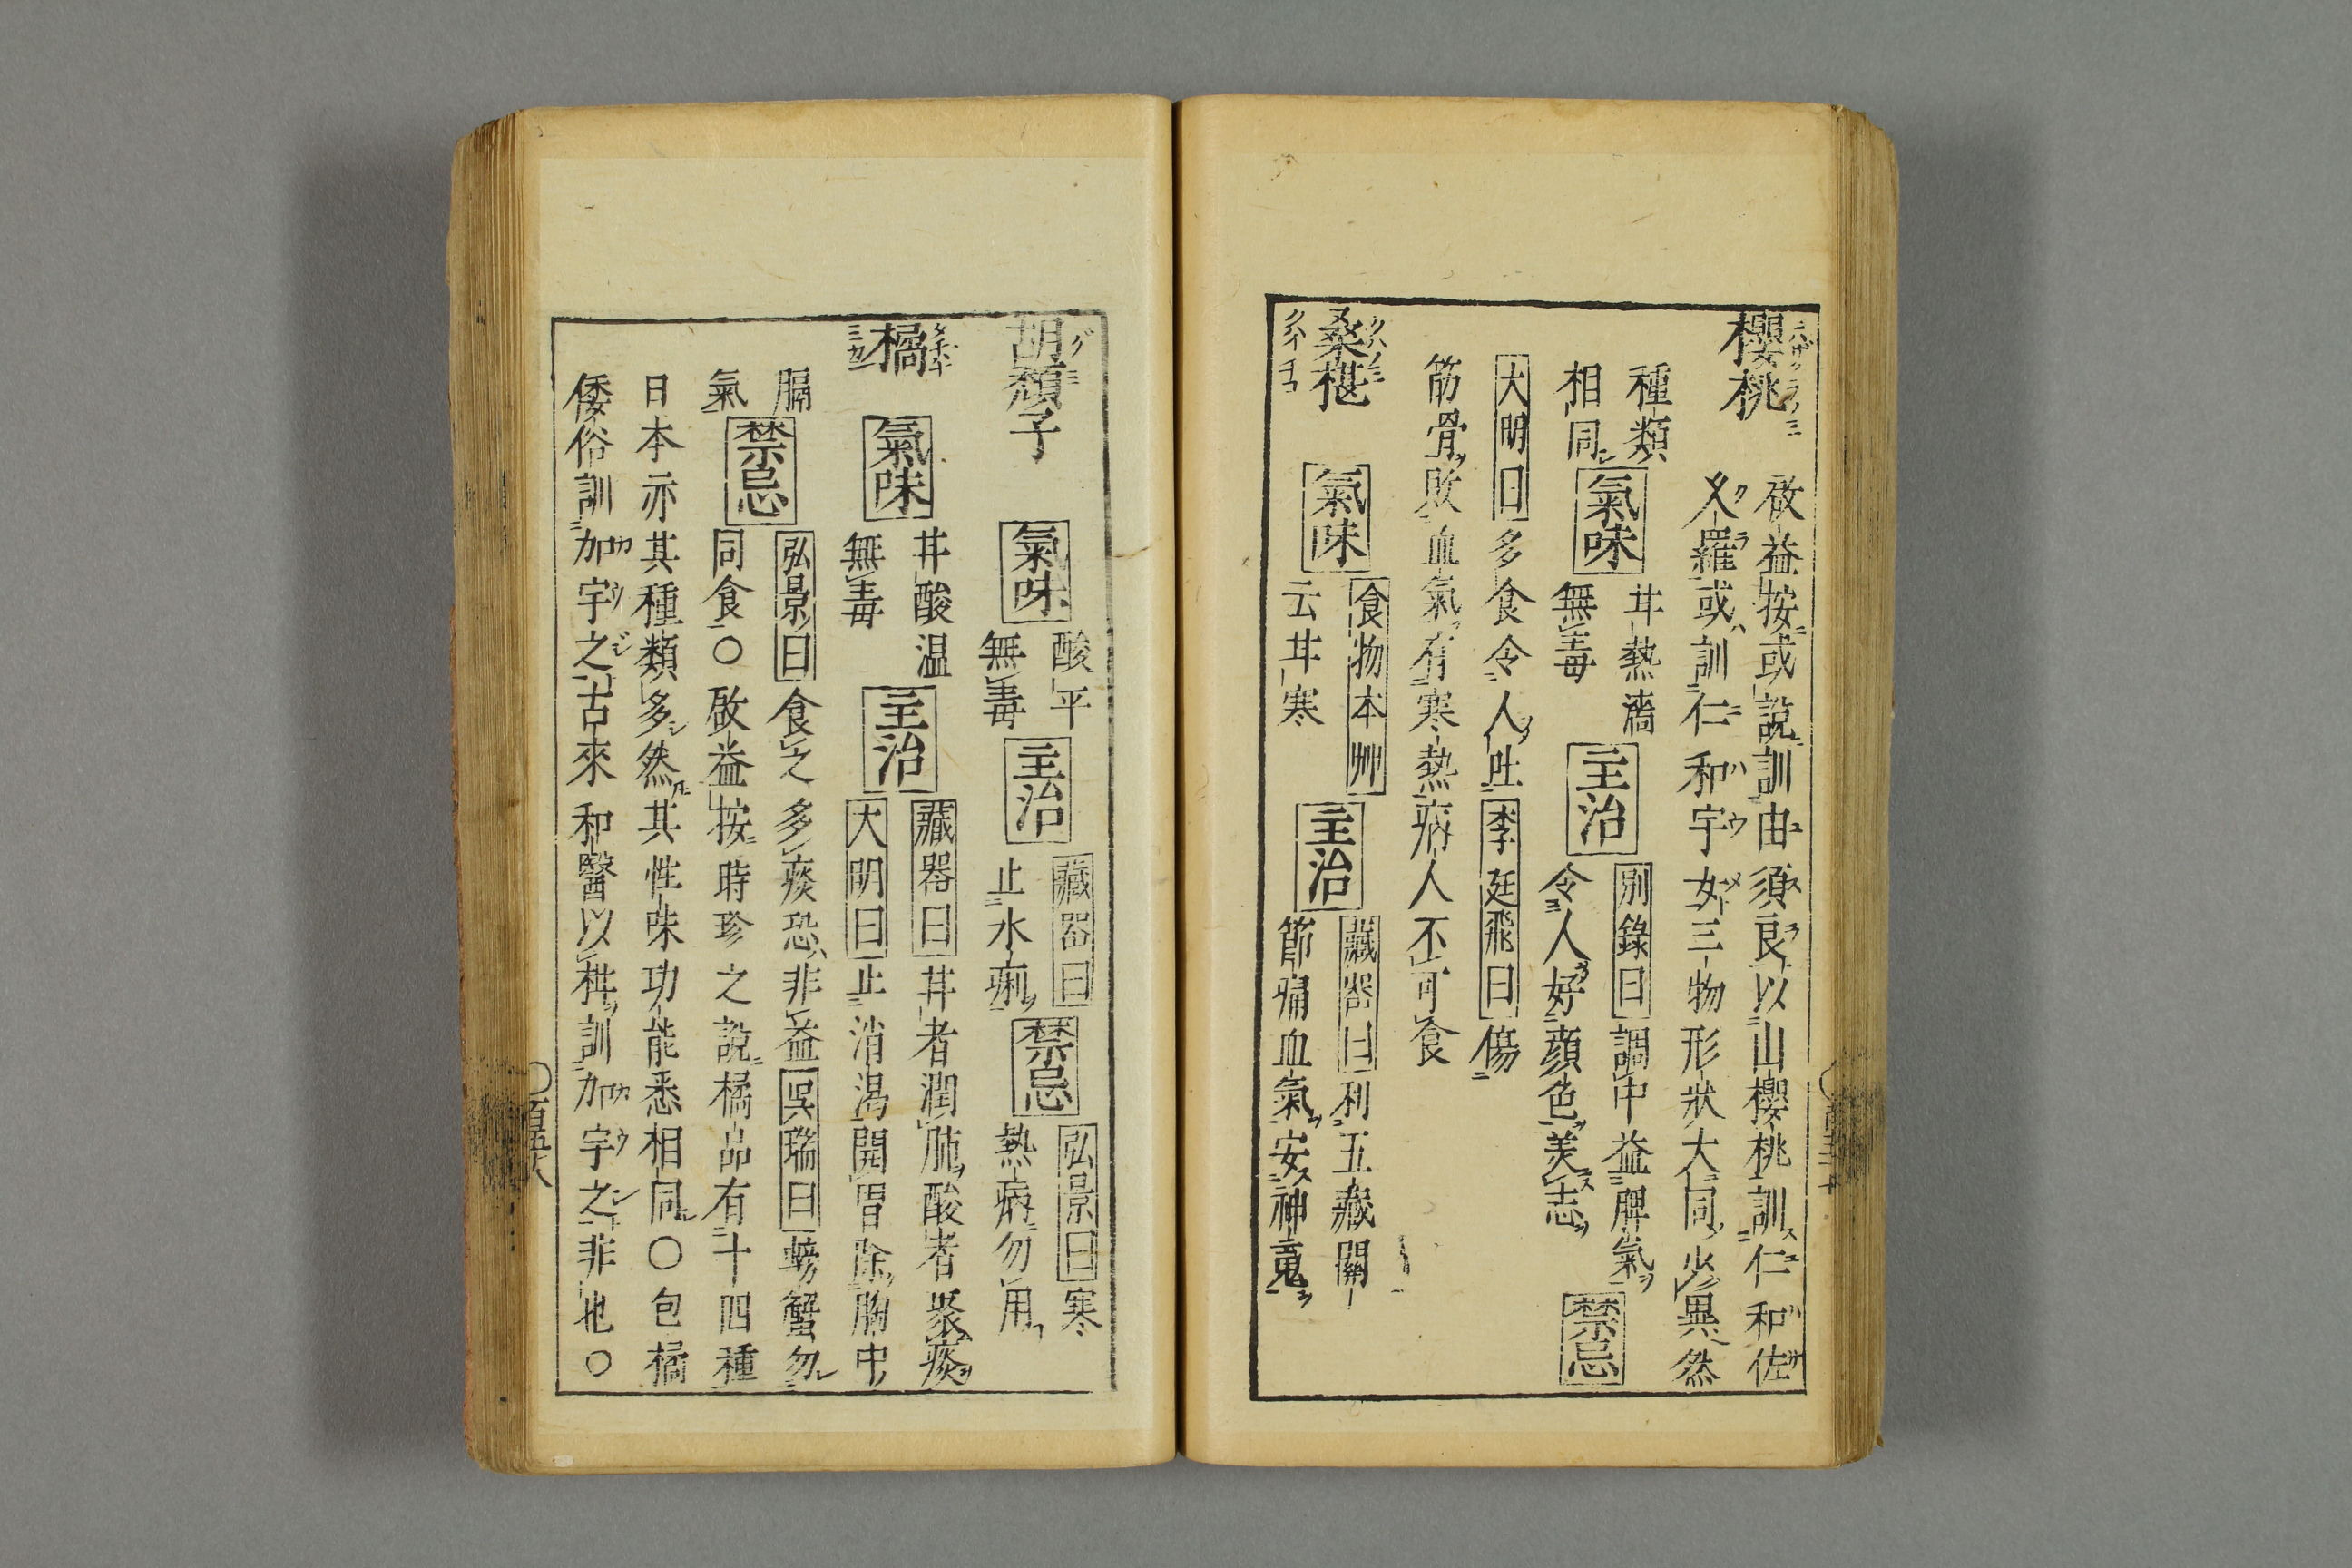 櫻桃
啟益按或說訓由須良以山櫻桃訓仁和佐
久羅或訓仁和宇女三物形狀大同少異然
種類
相同
氣味
甘熱濇
無毒
主治
別錄曰調中益脾氣
令人好顏色美志
禁忌
大明曰多食令人吐李廷飛曰傷
筋骨敗血氣有寒熱病人不可食
桑椹
氣味
食物本艸
云甘寒
主治
藏器曰利五藏關
節痛血氣安神䰟
胡頹子
氣味
酸平
無毒
主治
藏器曰
止水痢
禁忌
弘景曰寒
熱病勿用
橘
氣味
甘酸温
無毒
主治
藏器曰甘者潤肺酸者聚痰
大明曰止消渴開胃除胸中
膈
氣
禁忌
弘景曰食之多痰恐非益吳瑞曰螃蟹勿
同食〇啟益按時珍之說橘品有十四種
日本亦其種類多然其性味功能悉相同〇包橘
倭俗訓加宇之古來和醫以柑訓加宇之非也〇